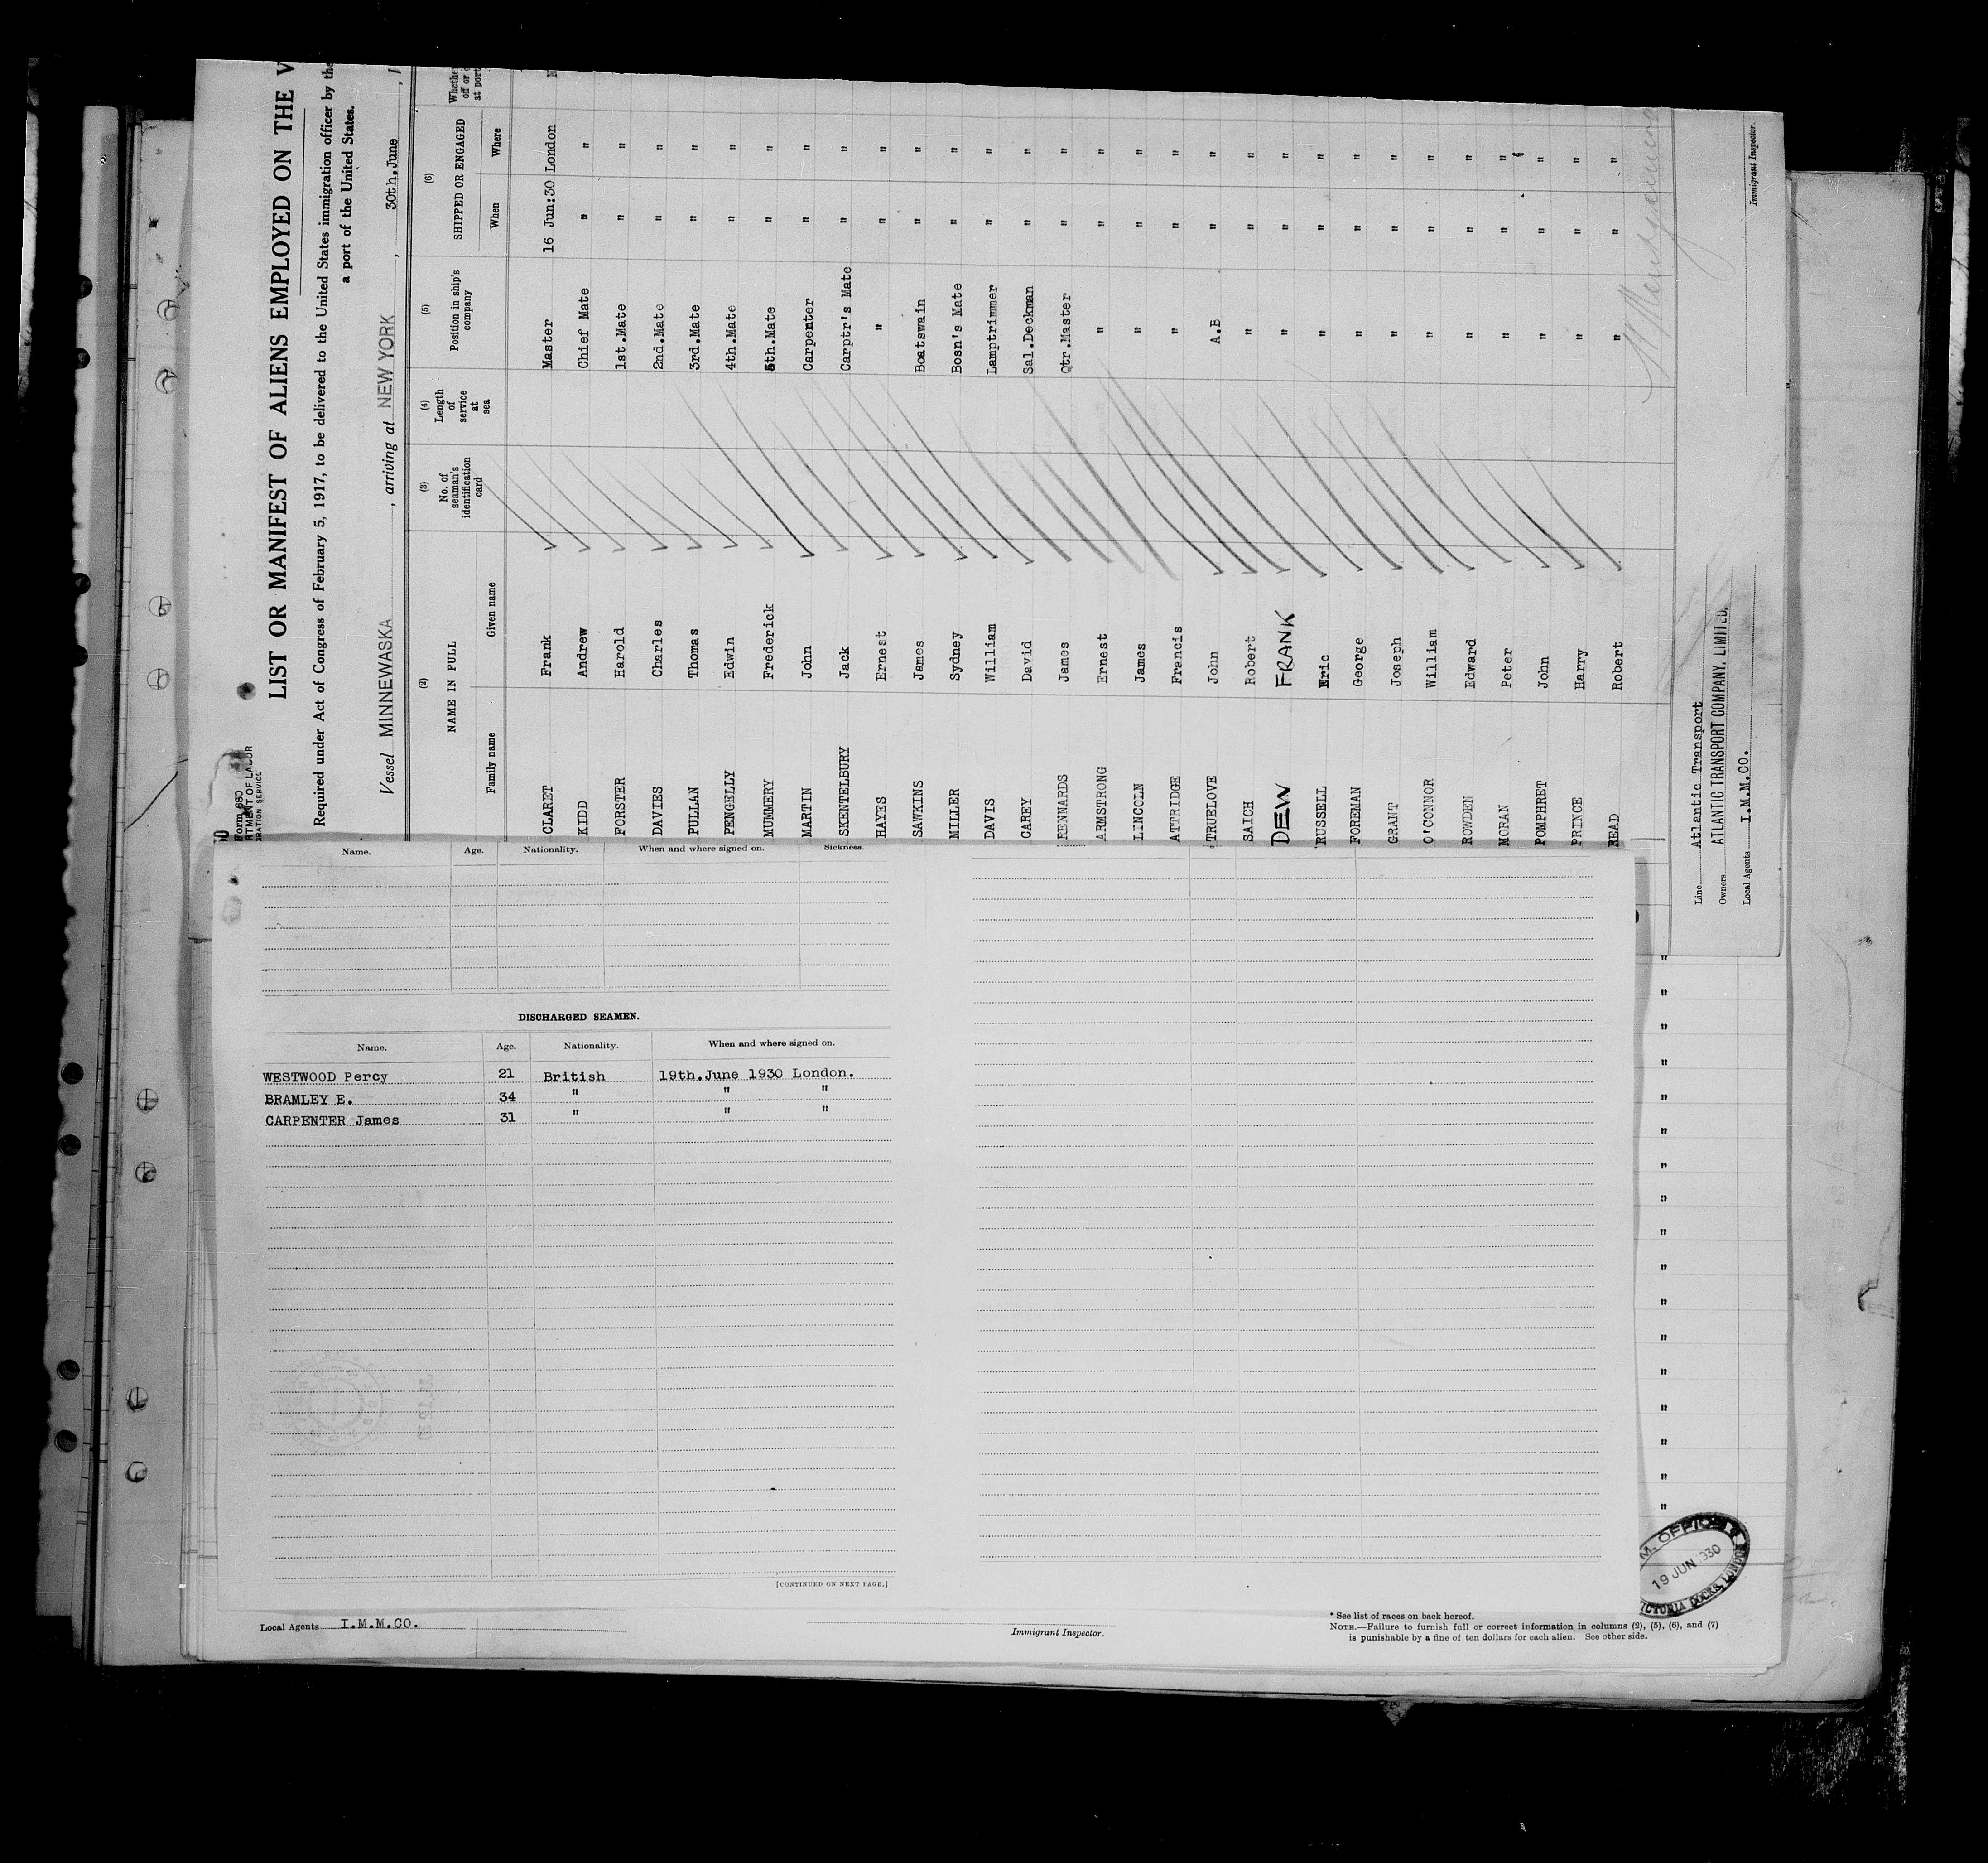 LIST OR MANIFEST OF ALIENS EMPLOYED ON THE V
Form 680
RTMENT OF LABOR
RATION SERVICE
Required under Act of Congress of February 5, 1917, to be delivered to the United States immigration officer by the
a port of the United States.
Vessel MINNEWASKA , arriving at NEW YORK , 30th.June , 1
(2) (3) (4) (5) (6)
NAME IN FULL No. of seaman's identification card Length of service at sea Position in ship's company SHIPPED OR ENGAGED Whether
off or d
at port
Family name Given name When Where
CLARET Frank Master 16 Jun:30 London N
KIDD Andrew Chief Mate " "
FORSTER Harold 1st.Mate " "
DAVIES Charles 2nd.Mate " "
PULLAN Thomas 3rd.Mate " "
PENGELLY Edwin 4th.Mate " "
MUMMERY Frederick 5th.Mate " "
MARTIN John Carpenter " "
SKENTELBURY Jack Carptr's Mate " "
HAYES Ernest " " "
SAWKINS James Boatswain " "
MILLER Sydney Bosn's Mate " "
DAVIS William Lamptrimmer " "
CAREY David Sal.Deckman " "
KENNARDS James Qtr.Master " "
ARMSTRONG Ernest " " "
LINCOLN James " " "
ATTRIDGE Francis " " "
TRUELOVE John A.B " "
SAICH Robert " " "
DEW FRANK " " "
RUSSELL Eric " " "
FOREMAN George " " "
GRANT Joseph " " "
O'CONNOR William " " "
ROWDEN Edward " " "
MORAN Peter " " "
POMPHRET John " " "
PRINCE Harry " " "
READ Robert " " "
Line Atlantic Transport
Owners ATLANTIC TRANSPORT COMPANY, LIMITED.
Local Agents I.M.M.CO.
Immigrant Inspector.
Name. Age. Nationality. When and where signed on. Sickness.
DISCHARGED SEAMEN.
Name. Age. Nationality. When and where signed on.
WESTWOOD Percy 21 British 19th.June 1930 London.
BRAMLEY E. 34 " " "
CARPENTER James 31 " " "
[CONTINUED ON NEXT PAGE.]
M. OFFICE
19 JUN 1930
VICTORIA DOCKS, LONDON
Local Agents I.M.M.CO.
Immigrant Inspector.
* See list of races on back hereof.
NOTE.—Failure to furnish full or correct information in columns (2), (5), (6), and (7)
is punishable by a fine of ten dollars for each alien. See other side.